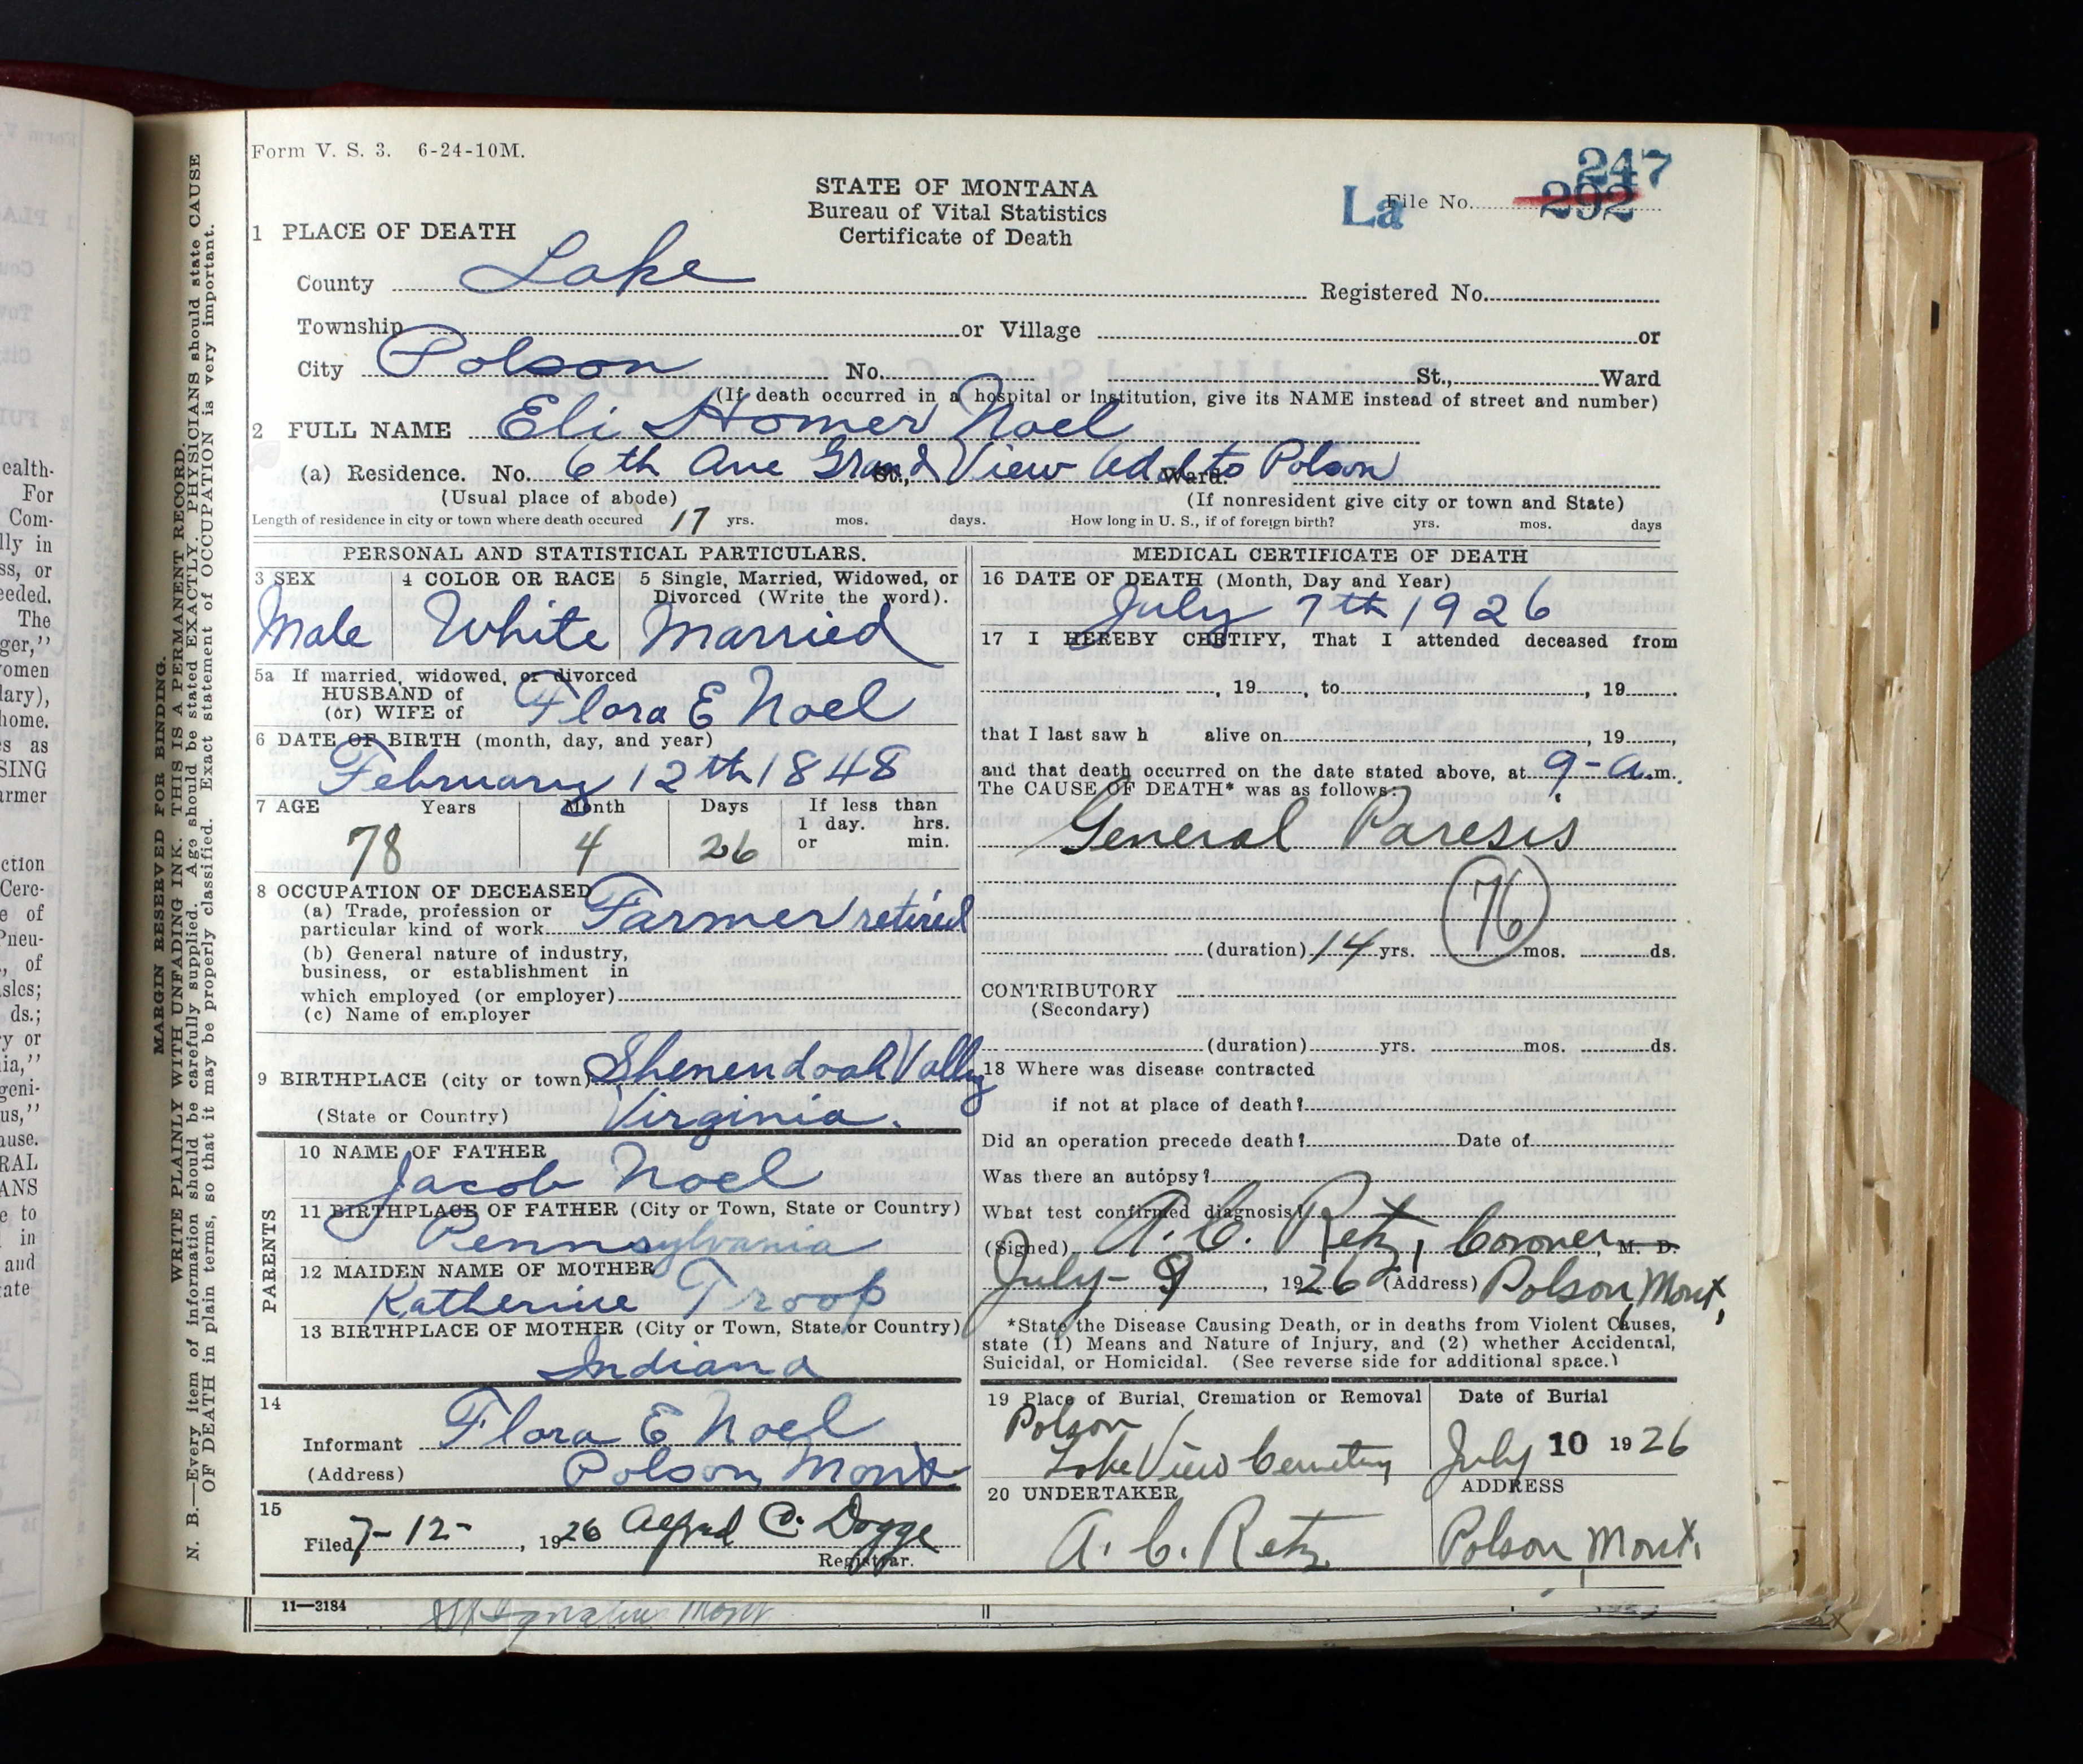 Form V. S. 3. 6-24-10M.
247
STATE OF MONTANA
La File No. 292
Bureau of Vital Statistics
Certificate of Death
1 PLACE OF DEATH
County Lake Registered No.
Township or Village or
City Polson No. St., Ward
(If death occurred in a hospital or institution, give its NAME instead of street and number)
2 FULL NAME Eli Homer Noel
(a) Residence. No. 6th Ave Grand View Add to Polson St., Ward.
(Usual place of abode) (If nonresident give city or town and State)
Length of residence in city or town where death occured 17 yrs. mos. days. How long in U. S., if of foreign birth? yrs. mos. days
PERSONAL AND STATISTICAL PARTICULARS.
3 SEX 4 COLOR OR RACE 5 Single, Married, Widowed, or
Divorced (Write the word).
Male White Married
5a If married, widowed, or divorced
HUSBAND of
(or) WIFE of Flora E Noel
6 DATE OF BIRTH (month, day, and year)
February 12th 1848
7 AGE Years Month Days If less than
1 day. hrs.
or min.
78 4 26
8 OCCUPATION OF DECEASED
(a) Trade, profession or
particular kind of work Farmer retired
(b) General nature of industry,
business, or establishment in
which employed (or employer)
(c) Name of employer
9 BIRTHPLACE (city or town) Shenendoah Vally
(State or Country) Virginia.
PARENTS
10 NAME OF FATHER
Jacob Noel
11 BIRTHPLACE OF FATHER (City or Town, State or Country)
Pennsylvania
12 MAIDEN NAME OF MOTHER
Katherine Troop
13 BIRTHPLACE OF MOTHER (City or Town, State or Country)
Indiana
14
Informant Flora E Noel
(Address) Polson, Mont
15
Filed 7-12-, 1926 Alfred C. Dogge
Registrar.
MEDICAL CERTIFICATE OF DEATH
16 DATE OF DEATH (Month, Day and Year)
July 7th 1926
17 I HEREBY CERTIFY, That I attended deceased from
, 19 , to , 19 .
that I last saw h alive on , 19 ,
and that death occurred on the date stated above, at 9-a.m.
The CAUSE OF DEATH* was as follows:
General Paresis
76
(duration) 14 yrs. mos. ds.
CONTRIBUTORY
(Secondary)
(duration) yrs. mos. ds.
18 Where was disease contracted
if not at place of death?
Did an operation precede death? Date of
Was there an autopsy?
What test confirmed diagnosis?
(Signed) A. C. Retz, Coroner, M. D.
July-9, 1926 (Address) Polson, Mont,
*State the Disease Causing Death, or in deaths from Violent Causes,
state (1) Means and Nature of Injury, and (2) whether Accidental,
Suicidal, or Homicidal. (See reverse side for additional space.)
19 Place of Burial, Cremation or Removal Date of Burial
Polson
Lake View Cemetery July 10 1926
20 UNDERTAKER ADDRESS
A. C. Retz Polson, Mont.
11—3184 St Ignatius Mont
MARGIN RESERVED FOR BINDING.
WRITE PLAINLY WITH UNFADING INK. THIS IS A PERMANENT RECORD.
N. B.—Every item of information should be carefully supplied. Age should be stated EXACTLY. PHYSICIANS should state CAUSE
OF DEATH in plain terms, so that it may be properly classified. Exact statement of OCCUPATION is very important.